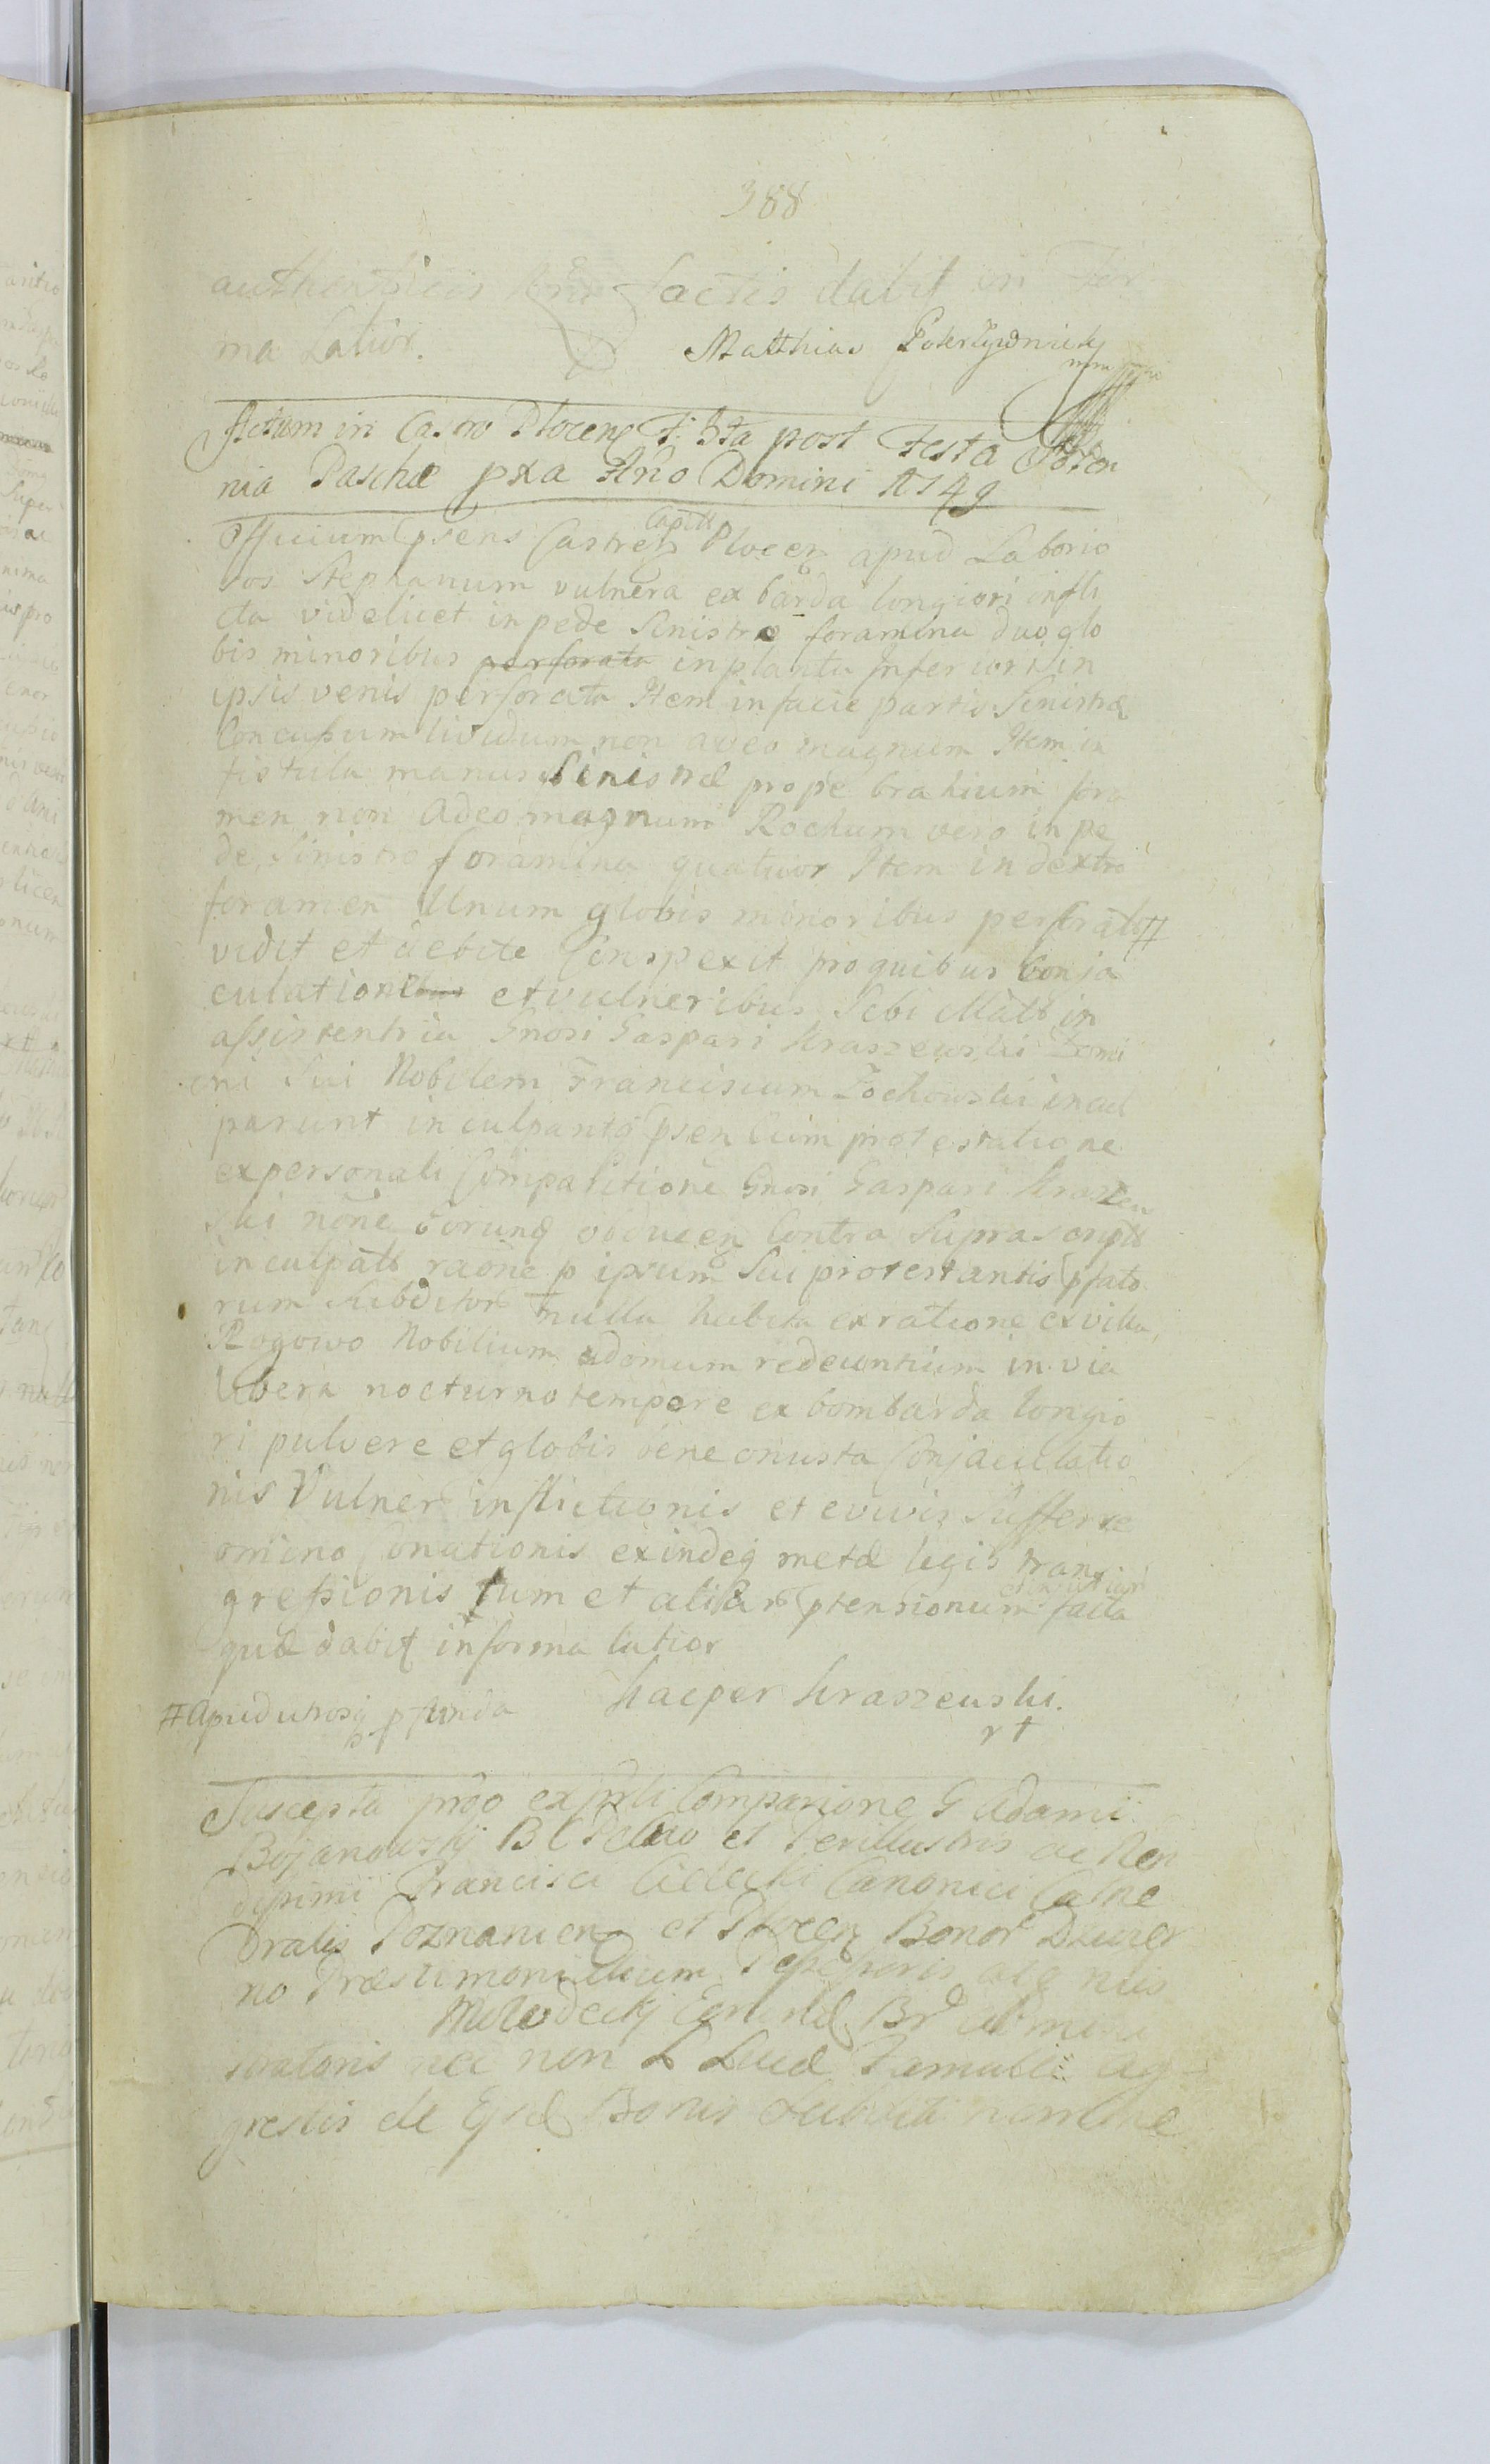 388
authenticis factis dabit in For
ma Latior.
Matthias
mm
Actum in Castro Plocen F. 5ta post Festa Solen
nia Paschæ pxa Ano Domini 1749
Officium psens Castren Capitt Plocen apud Laborio
sos Stephanum vulnera ex barda longiori infli
cta videlicet in pede Sinistro foramina duo glo
bis minoribus perforata in planta Inferiori in
ipsis venis perforata Item in facie partis Sinistræ
Concussum lividum non adeo magnum Item in
fistula manus Sinistræ prope brahium fora
men non Adeo magnum Rochum vero in pe
de Sinistro foramina quatuor Item in dextro
foramen Unum globis minoribus perforato #
vidit et debite Conspexit pro quibus Conja
culatione et vulneribus Sibi illatt in
assistentria Gnosi Gaspari Kraszewski Domi
ni Sui Nobilem Franciscum Zochowski incul
parunt inculpantq psentium protestatione
ex personali Comparitione Gnosi Gaspari Kraszew
ski none eorund obducen Contra Suprascript
inculpatt raone p ipsum Sui protestantis pfato
rum Subditor nulla habita ex ratione ex villa
Rogowo Nobilium adomum redeuntium in via
libera nocturno tempore ex bombarda longio
ri pulvere et globis bene onusta Conjaculatio
nis Vulner inflictionis et
omino onationis exindeq metæ legis trans
gressionis tum et aliar ptensionum facta
quæ dabit in forma latior
# Apud utrosq p funda
Kacper Kraszewski.
Suscepta pro ex Comparione G Adami
Bojanowsky B C et Perillustris ac Ren
dissimi Francisci Canonici Cathe
dralis Poznanien et Plocen Bonor
no Præstimonialium Possessoris atq
Mlodecky Br
stratoris nec non L Famuli ag
grestis de Ejsd Bonis Subditi nomine